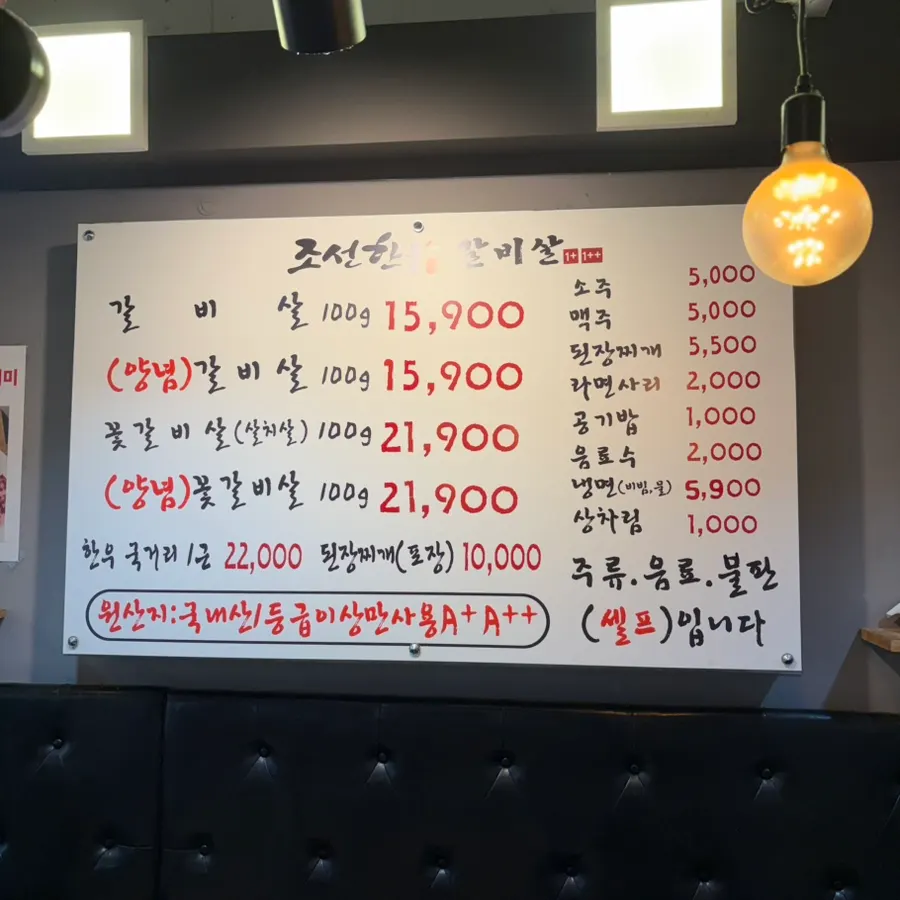 조선한우 갈비살 1+ 1++
갈 비 살 100g 15,900
(양념)갈 비 살 100g 15,900
꽃갈 비 살(살치살) 100g 21,900
(양념)꽃갈비살 100g 21,900
한우 국거리 1근 22,000 된장찌개(포장) 10,000
원산지:국내산1등급이상만사용A+ A++
소주 5,000
맥주 5,000
된장찌개 5,500
라면사리 2,000
공기밥 1,000
음료수 2,000
냉면(비빔,물) 5,900
상차림 1,000
주류.음료.불판
(셀프)입니다